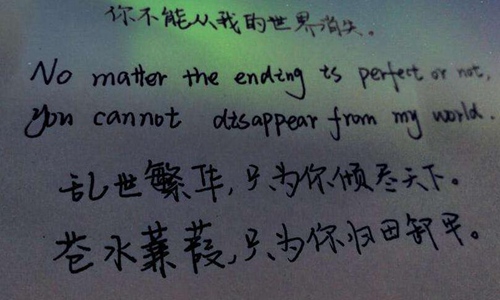 你不能从我的世界消失。
No matter the ending is perfect or not,
You cannot disappear from my world.
乱世繁华,只为你倾尽天下。
苍水蒹葭,只为你归田卸甲。